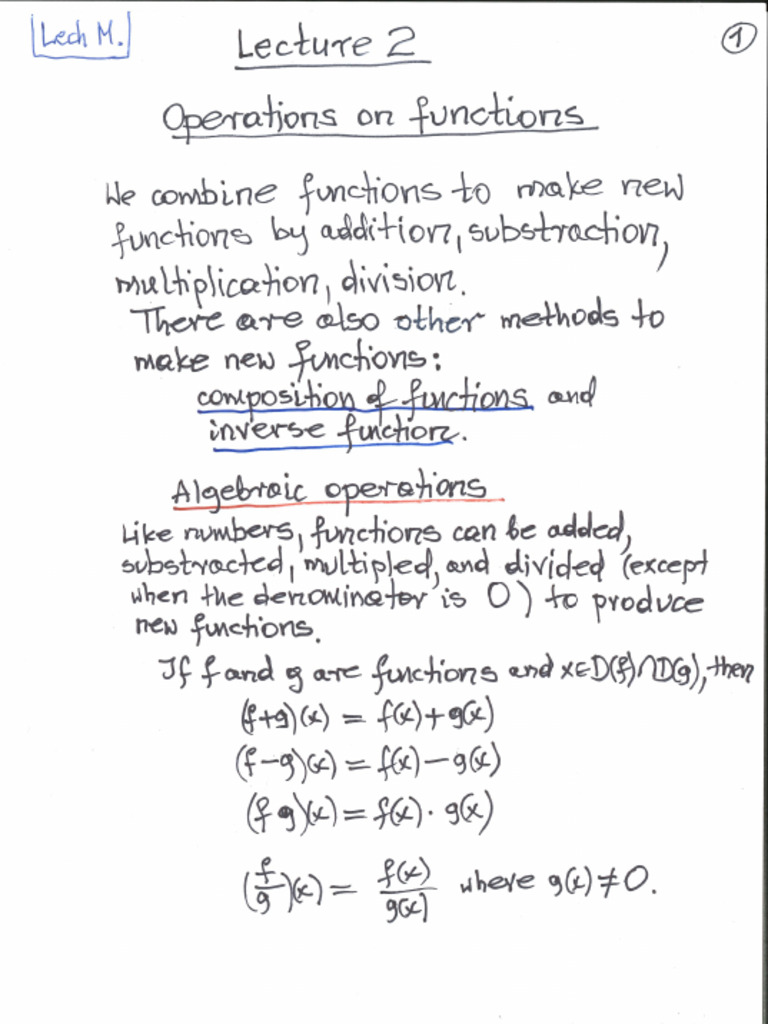 Lech M.
Lecture 2
1
Operations on functions
We combine functions to make new
functions by addition, substraction,
multiplication, division.
There are also other methods to
make new functions:
composition of functions and
inverse function.
Algebraic operations
Like numbers, functions can be added,
substracted, multipled, and divided (except
when the denominator is 0) to produce
new functions.
If f and g are functions and x∈D(f)∩D(g), then
(f+g)(x) = f(x)+g(x)
(f-g)(x) = f(x)-g(x)
(f g)(x) = f(x)·g(x)
(f/g)(x) = f(x)/g(x) where g(x)≠0.